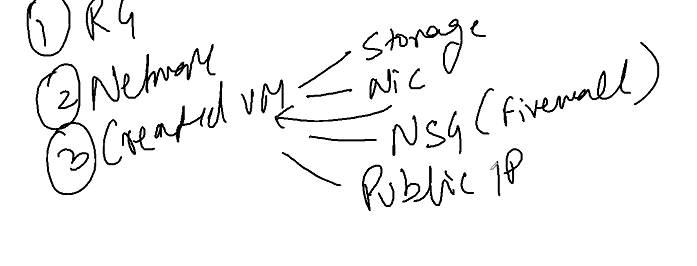 ① RG
② Network
③ Created VM
Storage
NIC
NSG (Firewall)
Public IP